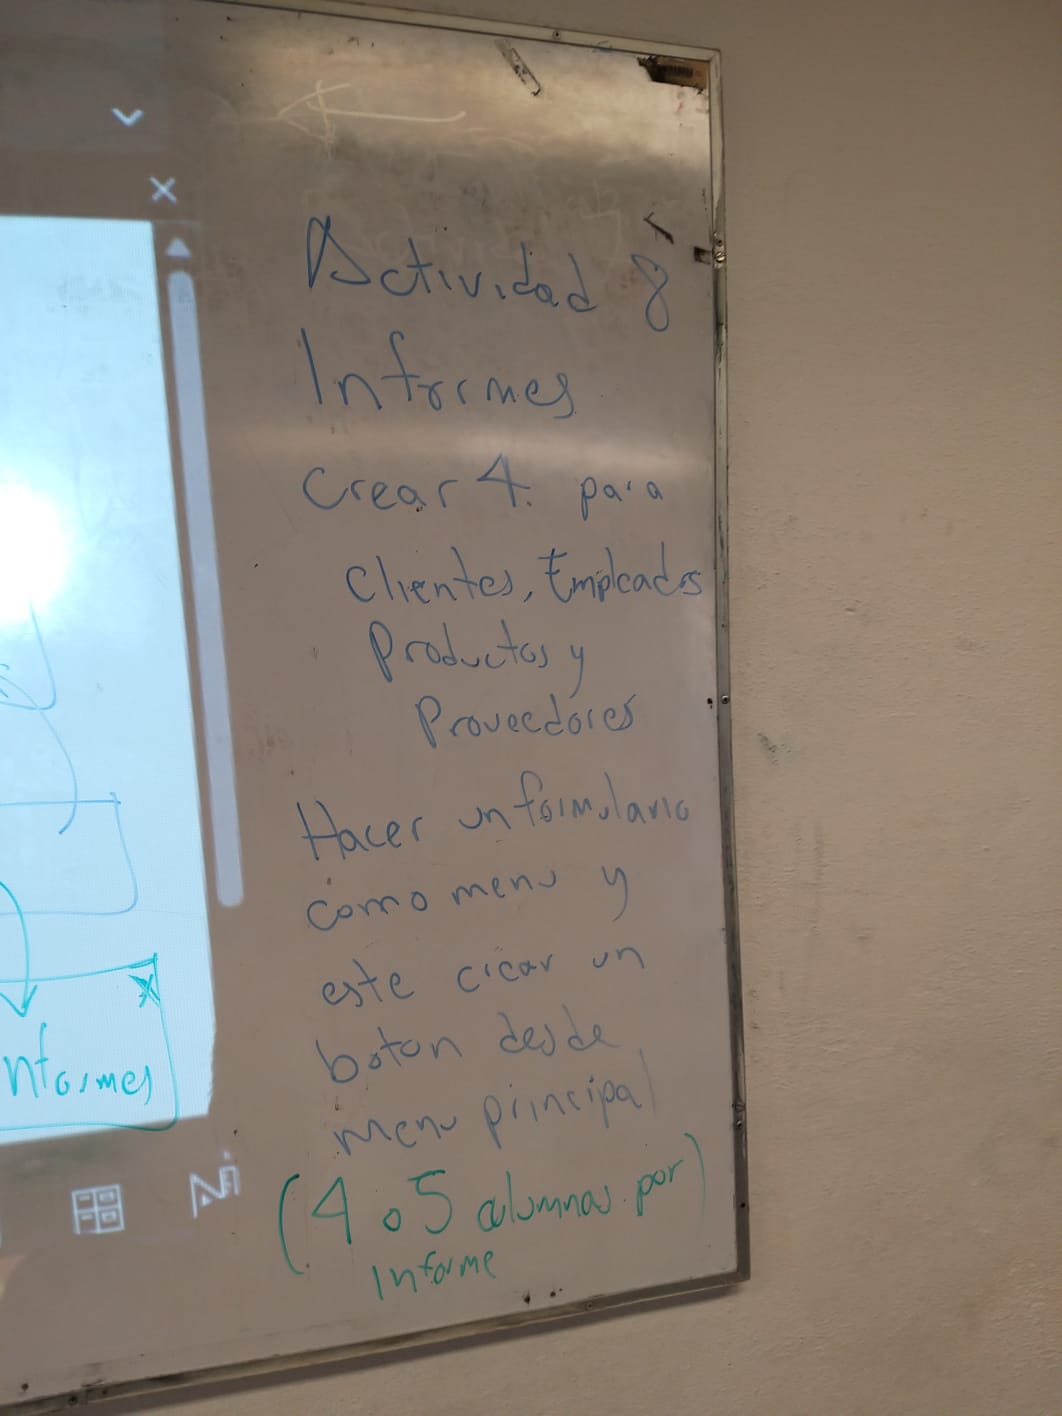 Actividad 8
Informes
Crear 4. para
Clientes, Empleados
Productos y
Proveedores
Hacer un formulario
como menu y
este crear un
boton desde
menu principal
(4 o 5 columnas por)
informe
nformes